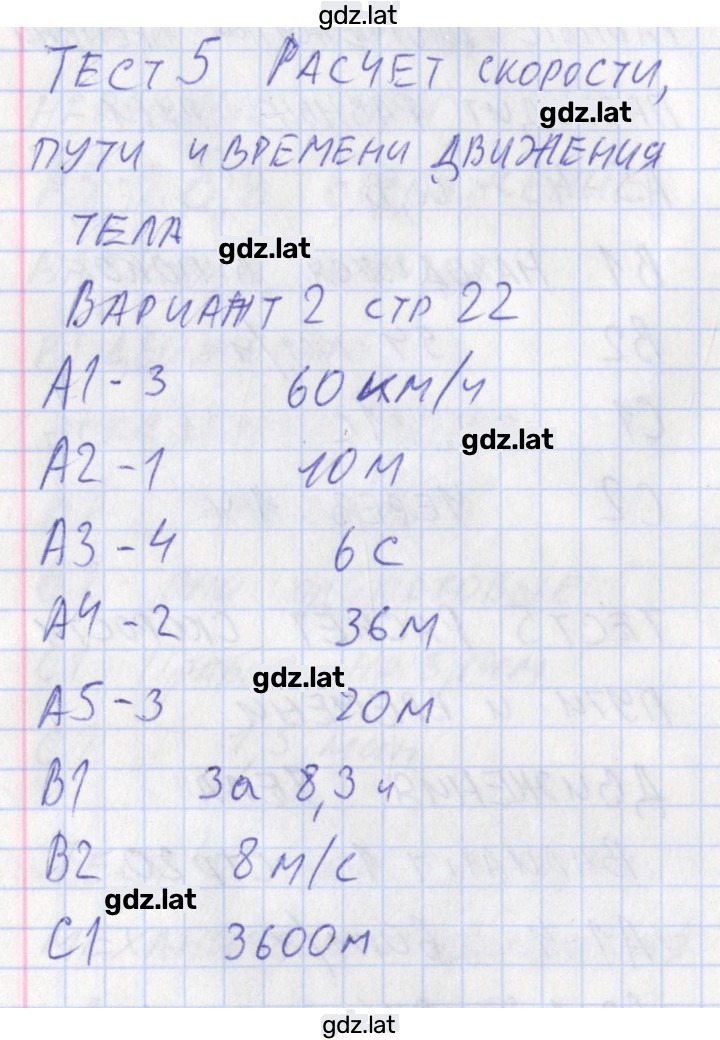 gdz.lat
Тест 5 Расчет скорости,
gdz.lat
пути и времени движения
тела
gdz.lat
Вариант 2 стр 22
А1 - 3 60 км/ч
gdz.lat
А2 - 1 10 м
А3 - 4 6 с
А4 - 2 36 м
gdz.lat
А5 - 3 20 м
В1 За 8,3 ч
В2 8 м/с
gdz.lat
С1 3600 м
gdz.lat